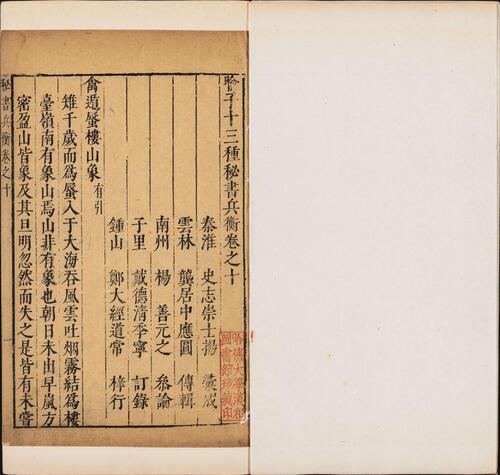 韜子十三種秘書兵衡卷之十
秦淮 史志崇士揚 彙成
雲林 龔居中應圓 傳輯
南州 楊 善元之 叅論
子里 戴德清季寧 訂錄
鍾山 鄭大經道常 梓行
禽遁蜃樓山象 有引
雉千歲而爲蜃入于大海吞風雲吐烟霧結爲樓
臺嶺南有象山焉山非有象也朝日未出早嵐方
密盈山皆象及其旦明忽然而失之是皆有未嘗
秘書兵衡卷之十
哈佛大學漢和
圖書館珍藏印